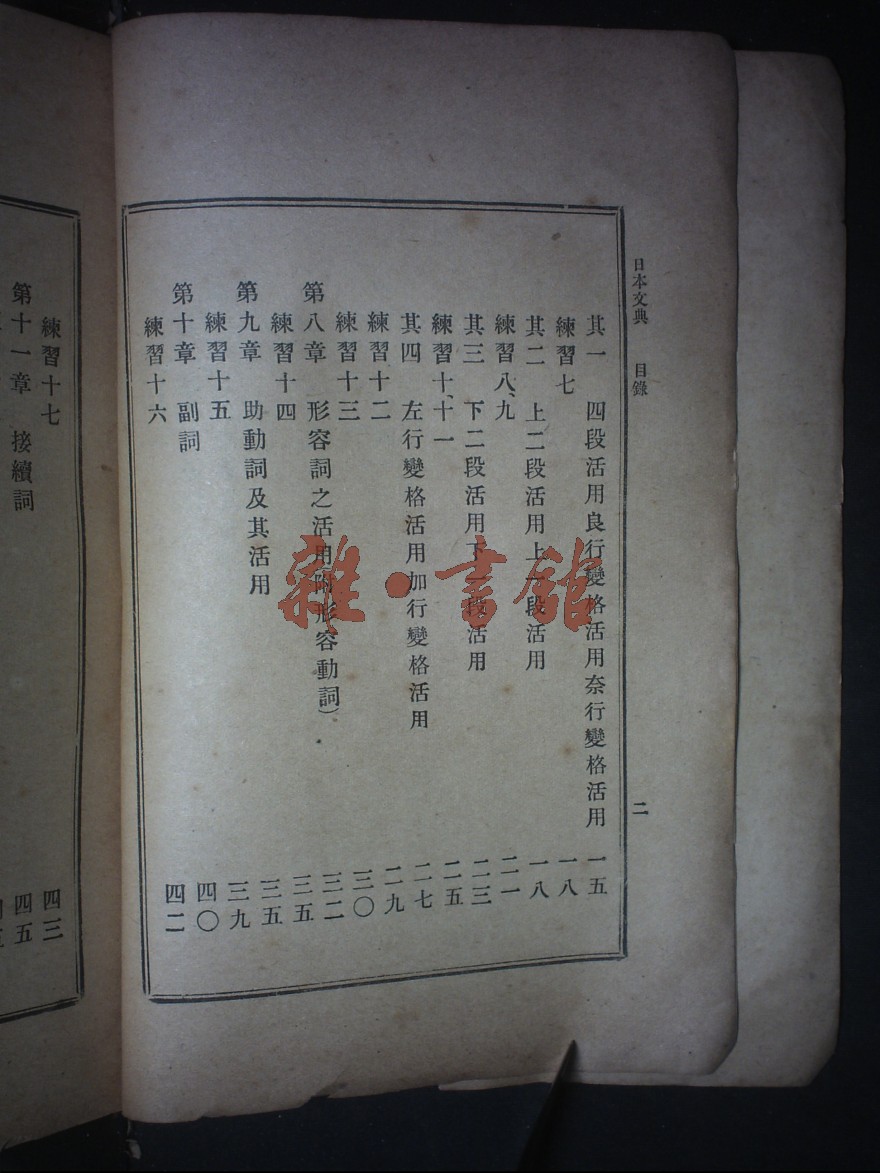 日本文典 目錄 二
其一 四段活用良行變格活用奈行變格活用 一五
練習七 一八
其二 上二段活用上一段活用 一八
練習八、九 二一
其三 下二段活用下一段活用 二三
練習十、十一 二五
其四 左行變格活用加行變格活用 二七
練習十二 二九
練習十三 三〇
第八章 形容詞之活用附形容動詞） 三二
練習十四 三五
第九章 助動詞及其活用 三五
練習十五 三九
第十章 副詞 四〇
練習十六 四二
練習十七 四三
第十一章 接續詞 四五
雜·書館